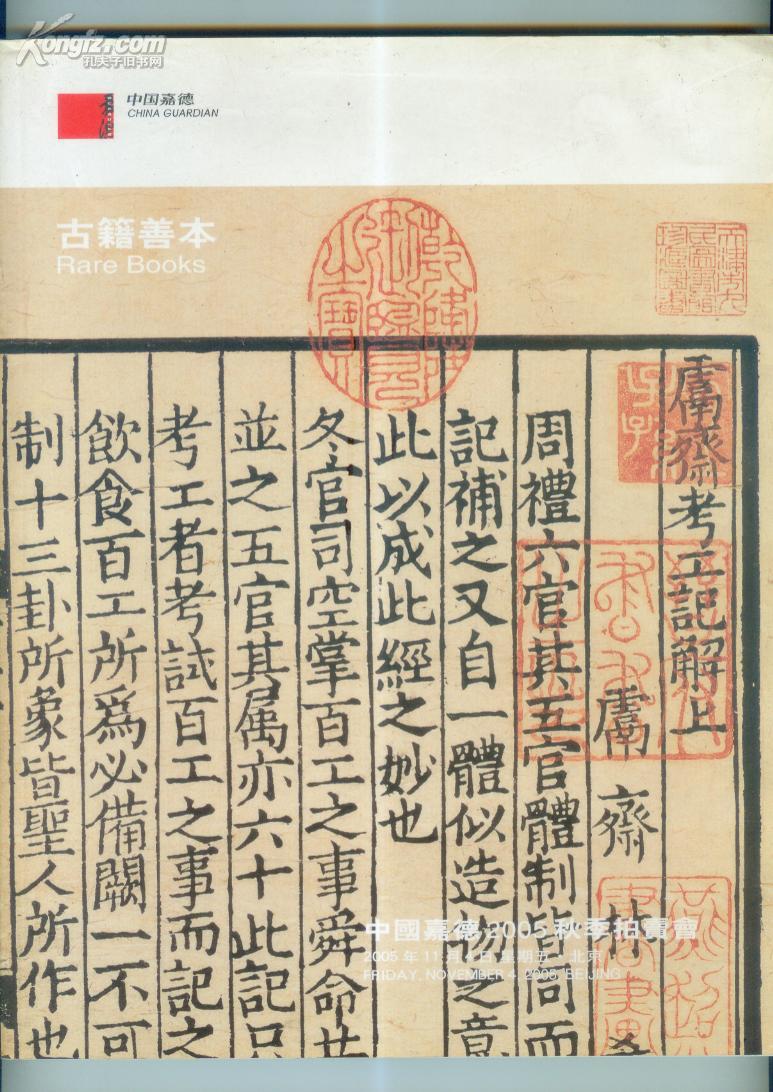 Kongfz.com
孔夫子旧书网
中国嘉德
CHINA GUARDIAN
古籍善本
Rare Books
鬳齋考工記解上
鬳齋 林
周禮六官其五官體制皆同而
記補之又自一體似造物之意
此以成此經之妙也
冬官司空掌百工之事舜命共
並之五官其属亦六十此記只
考工者考試百工之事而記之
飲食百工所爲必備闕一不可
制十三卦所象皆聖人所作也
中國嘉德2005秋季拍賣會
2005年11月4日 星期五·北京
FRIDAY, NOVEMBER 4, 2005, BEIJING